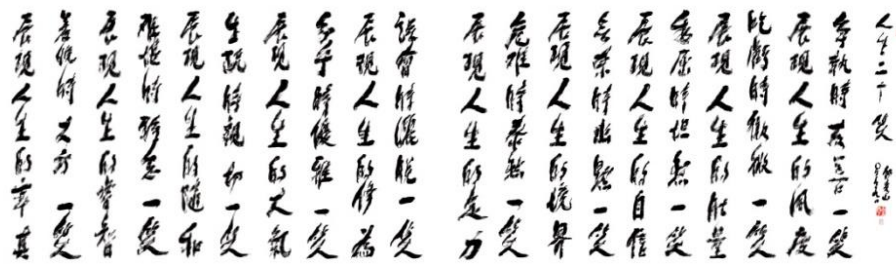 人生二十笑
争執時友善一笑
展現人生的風度
吃虧時微微一笑
展現人生的肚量
委屈時坦然一笑
展現人生的自信
時幽默一笑
展現人生的境界
危難時泰然一笑
展現人生的定力
誤會時灑脫一笑
展現人生的修為
時優雅一笑
展現人生的大氣
生疏時親切一笑
展現人生的隨和
時一笑
展現人生的睿智
時大方一笑
展現人生的率真